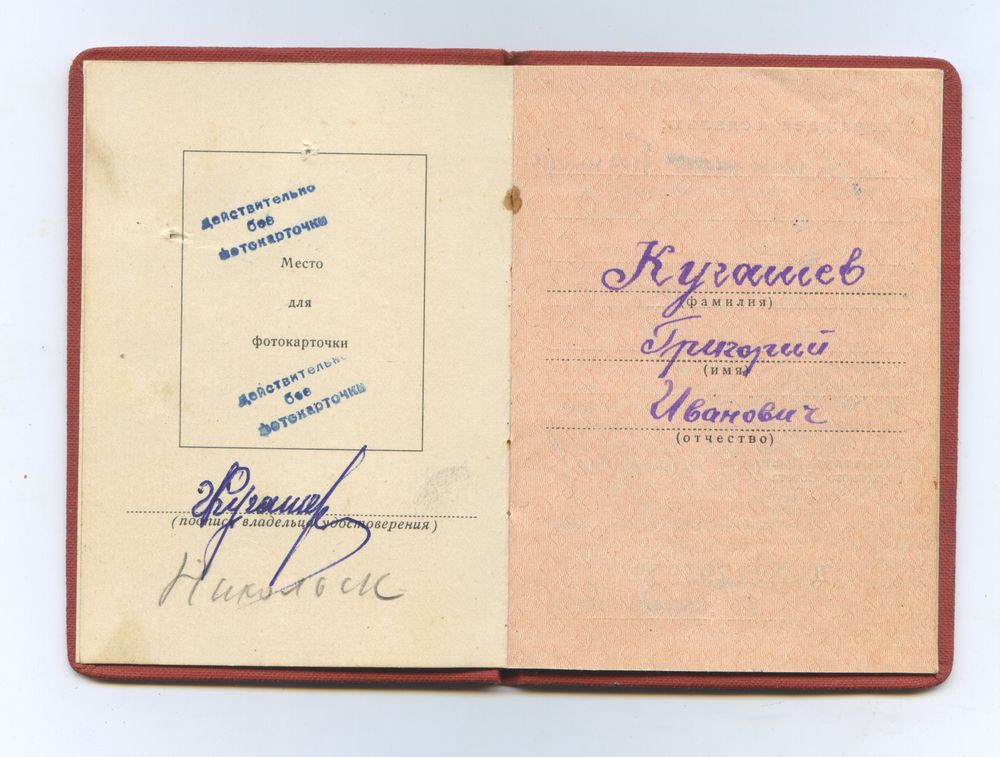 Действительно
без
фотокарточки
Место
для
фотокарточки
Действительно
без
фотокарточки
Кугашев
(подпись владельца удостоверения)
Никольск
Кугашев
(фамилия)
Григорий
(имя)
Иванович
(отчество)